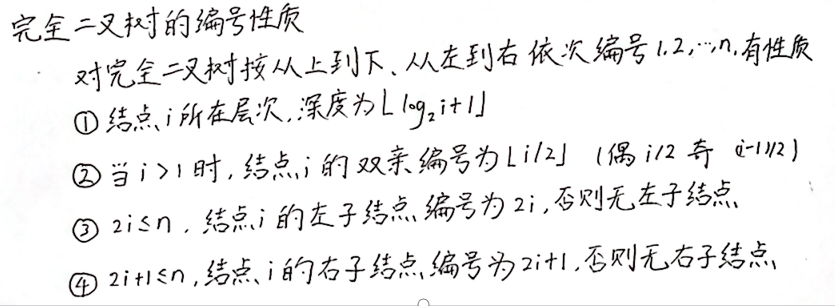 完全二叉树的编号性质
对完全二叉树按从上到下、从左到右依次编号1.2,…,n,有性质
① 结点i所在层次,深度为⌊log₂i+1⌋
② 当i>1时,结点i的双亲编号为⌊i/2⌋ (偶i/2 奇 (i-1)/2)
③ 2i≤n,结点i的左子结点编号为2i,否则无左子结点、
④ 2i+1≤n,结点i的右子结点编号为2i+1,否则无右子结点、